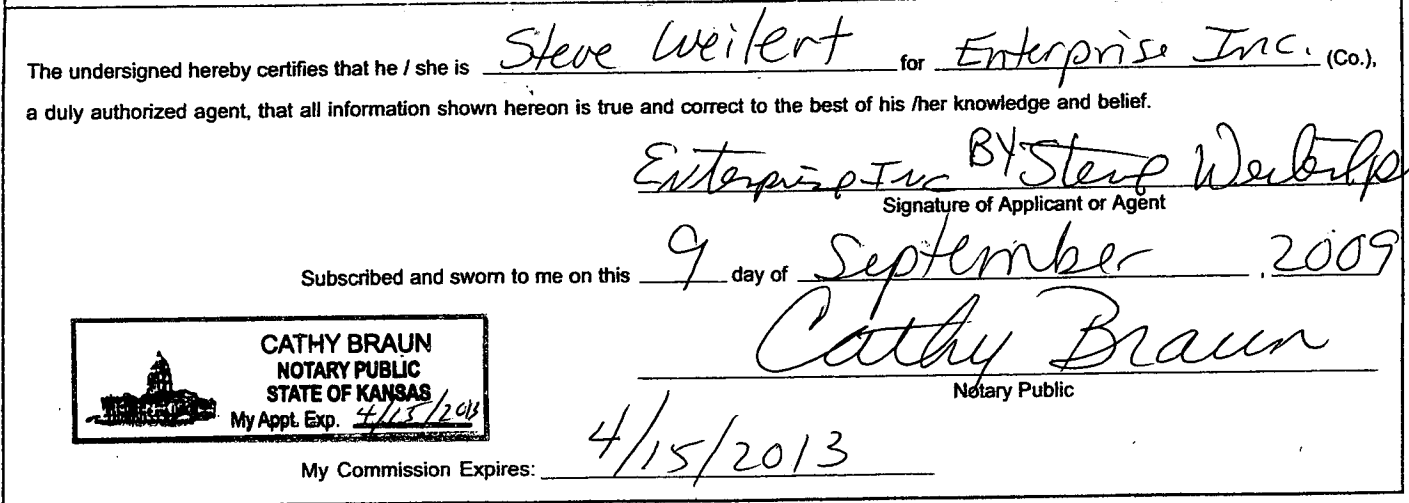 The undersigned hereby certifies that he / she is Steve Weilert for Enterprise Inc. (Co.),
a duly authorized agent, that all information shown hereon is true and correct to the best of his /her knowledge and belief.
Enterprise Inc BY Steve
Signature of Applicant or Agent
Subscribed and sworn to me on this 9 day of September , 2009
Cathy Braun
Notary Public
CATHY BRAUN
NOTARY PUBLIC
STATE OF KANSAS
My Appt. Exp. 4/15/2013
My Commission Expires: 4/15/2013